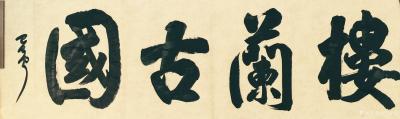 樓蘭古國